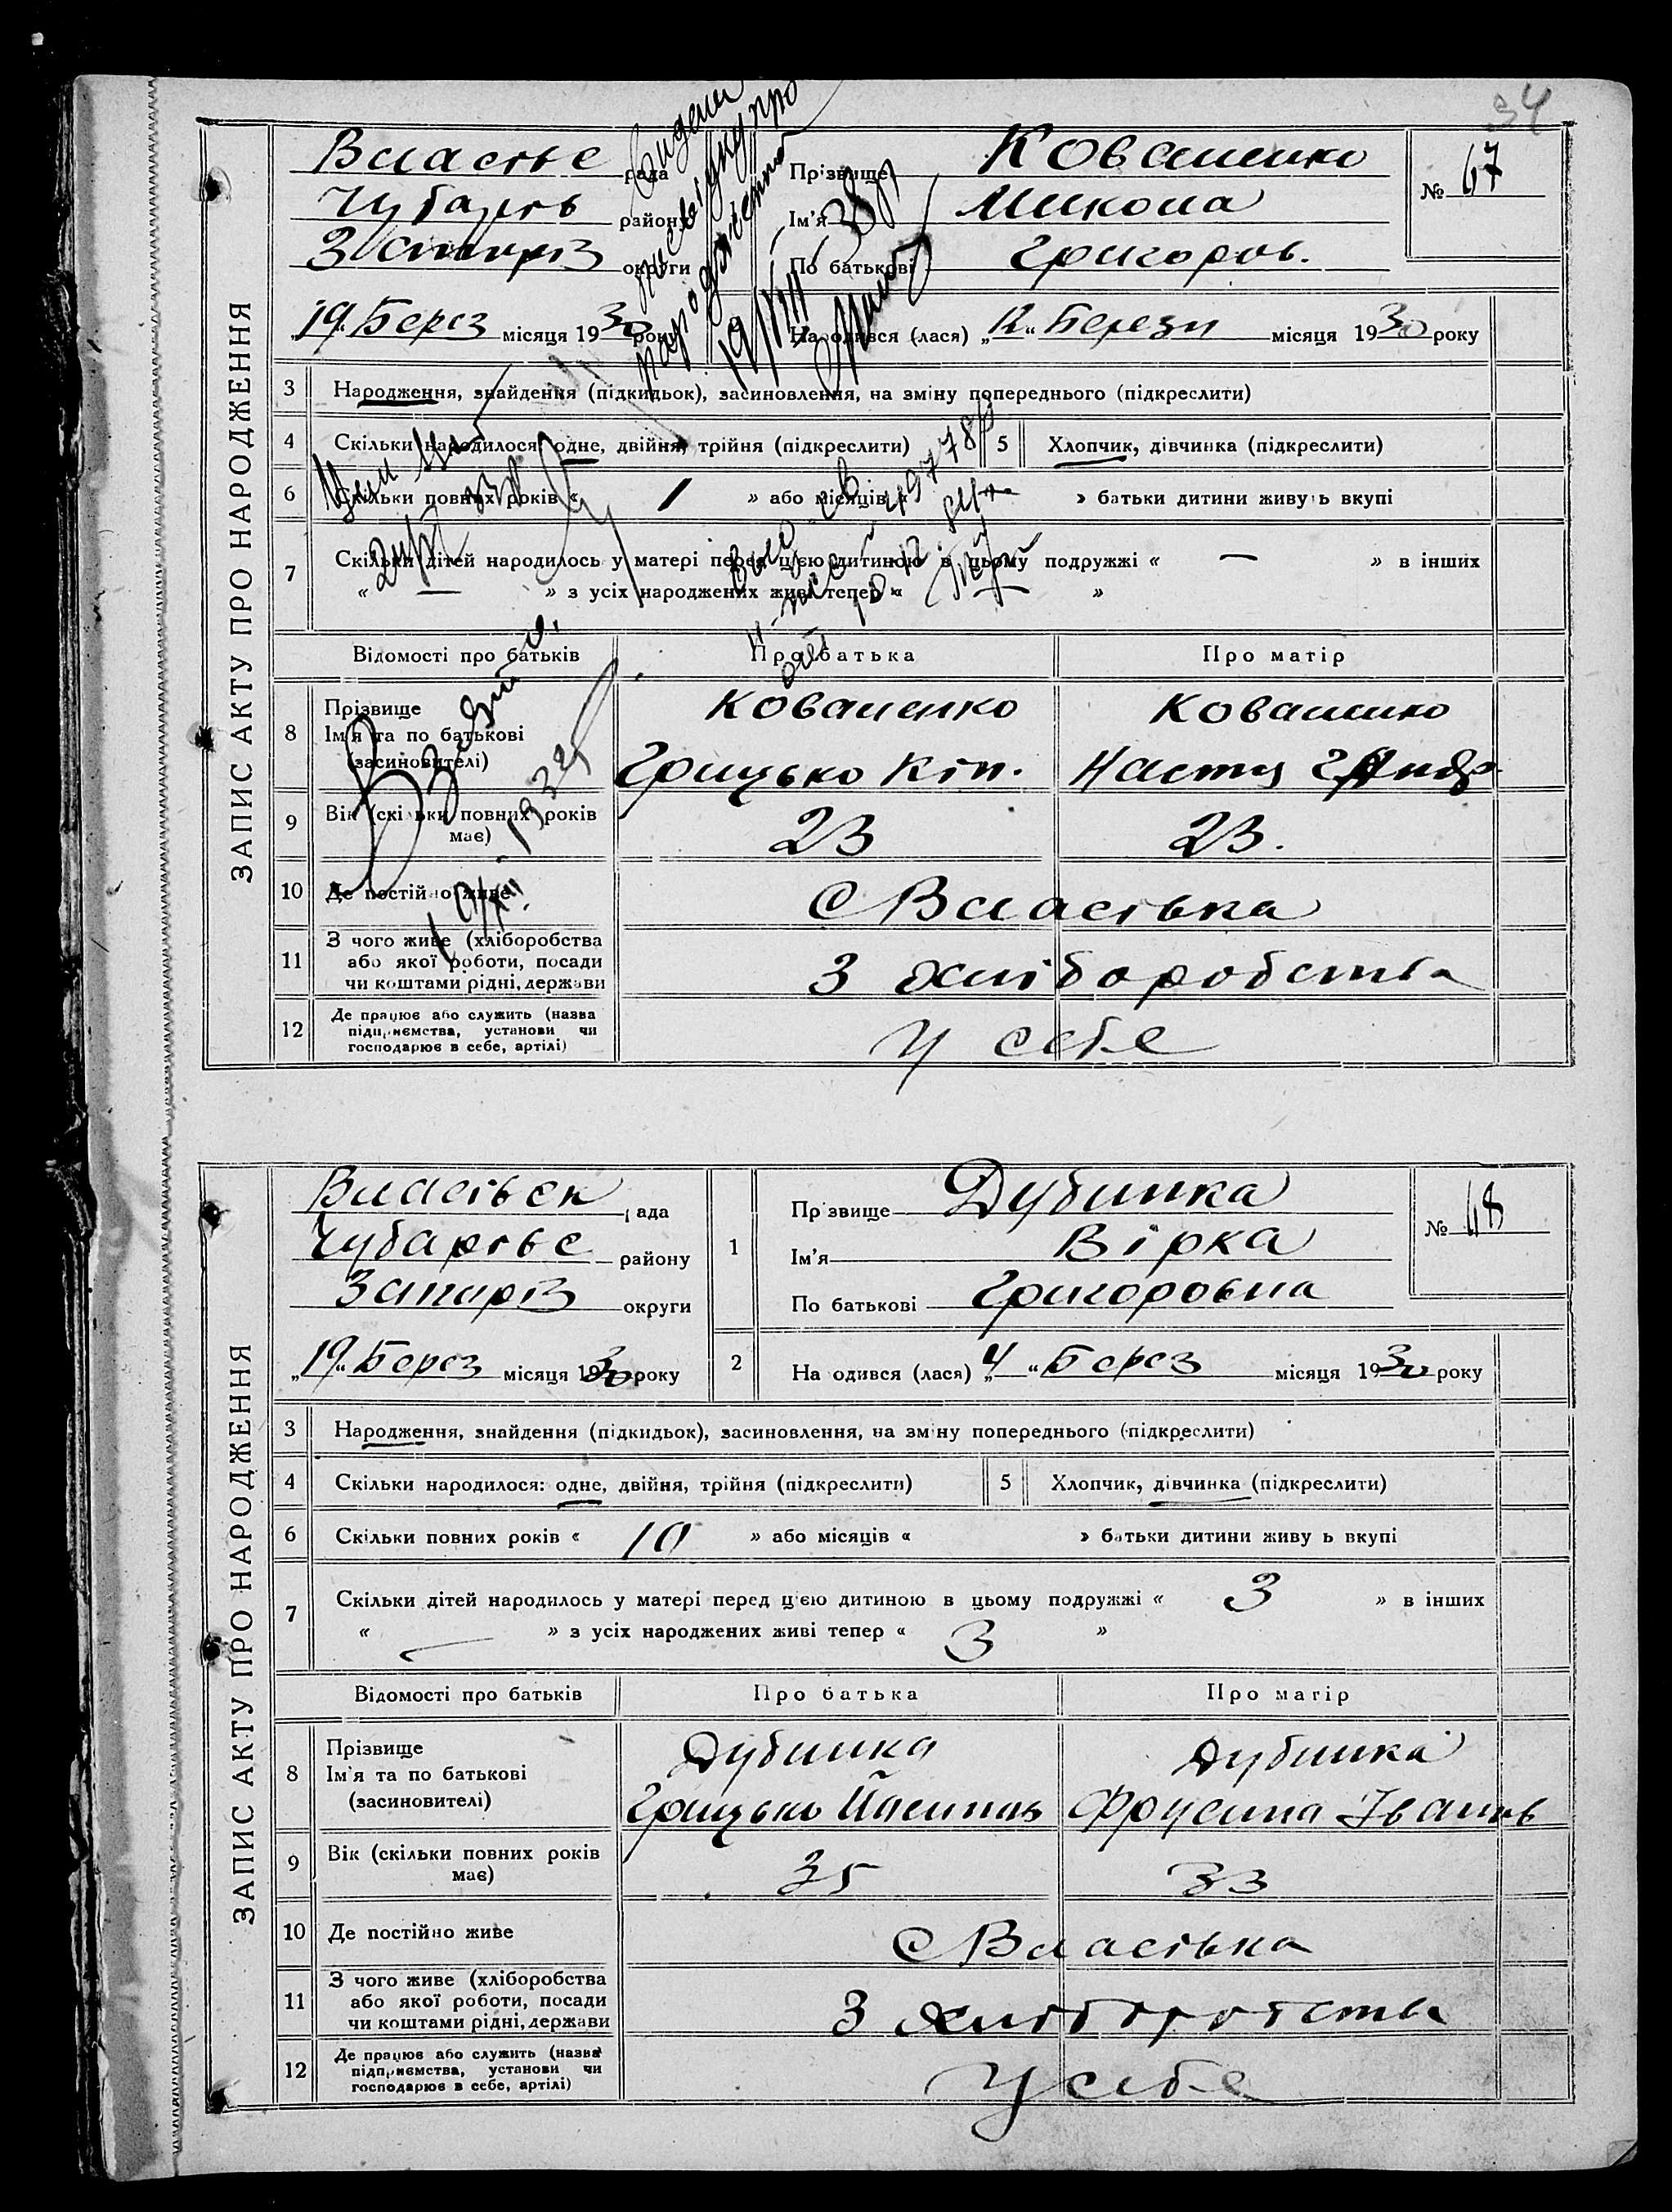 34
ЗАПИС АКТУ ПРО НАРОДЖЕННЯ
Власівс рада
Чубарів району
Запоріз округи
Прізвище Коваленко
Ім'я Микола
По батькові Григоров.
№ 67
„19“ Берез місяця 1930 року
Народився (лася) „12“ Березн місяця 1930 року
3 Народження, знайдення (підкидьок), засиновлення, на зміну попереднього (підкреслити)
4 Скільки народилося: одне, двійня, трійня (підкреслити) 5 Хлопчик, дівчинка (підкреслити)
6 Скільки повних років « 1 » або місяців « » батьки дитини живуть вкупі
7 Скільки дітей народилось у матері перед цією дитиною в цьому подружжі « — » в інших
« — » з усіх народжених живі тепер « — »
Відомості про батьків Про батька Про матір
8 Прізвище Коваленко Коваленко
Ім'я та по батькові
(засиновителі) Грицько Кіп. Настя Андр.
9 Вік (скільки повних років 23 23.
має)
10 Де постійно живе с Власівка
11 З чого живе (хліборобства
або якої роботи, посади З хліборобства
чи коштами рідні, держави
12 Де працює або служить (назва
підприємства, установи чи у себе
господарює в себе, артілі)
19/VIII 38р
ЗАПИС АКТУ ПРО НАРОДЖЕННЯ
Власівск рада
Чубарівс району
Запоріз округи
1 Прізвище Дубинка
Ім'я Вірка
По батькові Григоровна
№ 68
„19“ Берез місяця 1930 року
2 Народився (лася) „4“ Берез місяця 1930 року
3 Народження, знайдення (підкидьок), засиновлення, на зміну попереднього (підкреслити)
4 Скільки народилося: одне, двійня, трійня (підкреслити) 5 Хлопчик, дівчинка (підкреслити)
6 Скільки повних років « 10 » або місяців « » батьки дитини живуть вкупі
7 Скільки дітей народилось у матері перед цією дитиною в цьому подружжі « 3 » в інших
« — » з усіх народжених живі тепер « 3 »
Відомості про батьків Про батька Про матір
8 Прізвище Дубинка Дубинка
Ім'я та по батькові
(засиновителі) Грицько Фрусина Іванів
9 Вік (скільки повних років 35 33
має)
10 Де постійно живе с Власівка
11 З чого живе (хліборобства
або якої роботи, посади З хліборобства
чи коштами рідні, держави
12 Де працює або служить (назва
підприємства, установи чи У себе
господарює в себе, артілі)